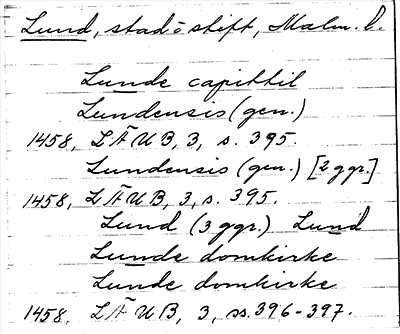 Lund, stad o stift, Malm. l.
Lunde capittil
Lundensis (gen.)
1458, LÄUB, 3, s. 395.
Lundensis (gen.) [2 ggr.]
1458, LÄUB, 3, s. 395.
Lund (3 ggr.) Lund
Lunde domkirke
Lunde domkirke
1458, LÄUB, 3, ss. 396-397.